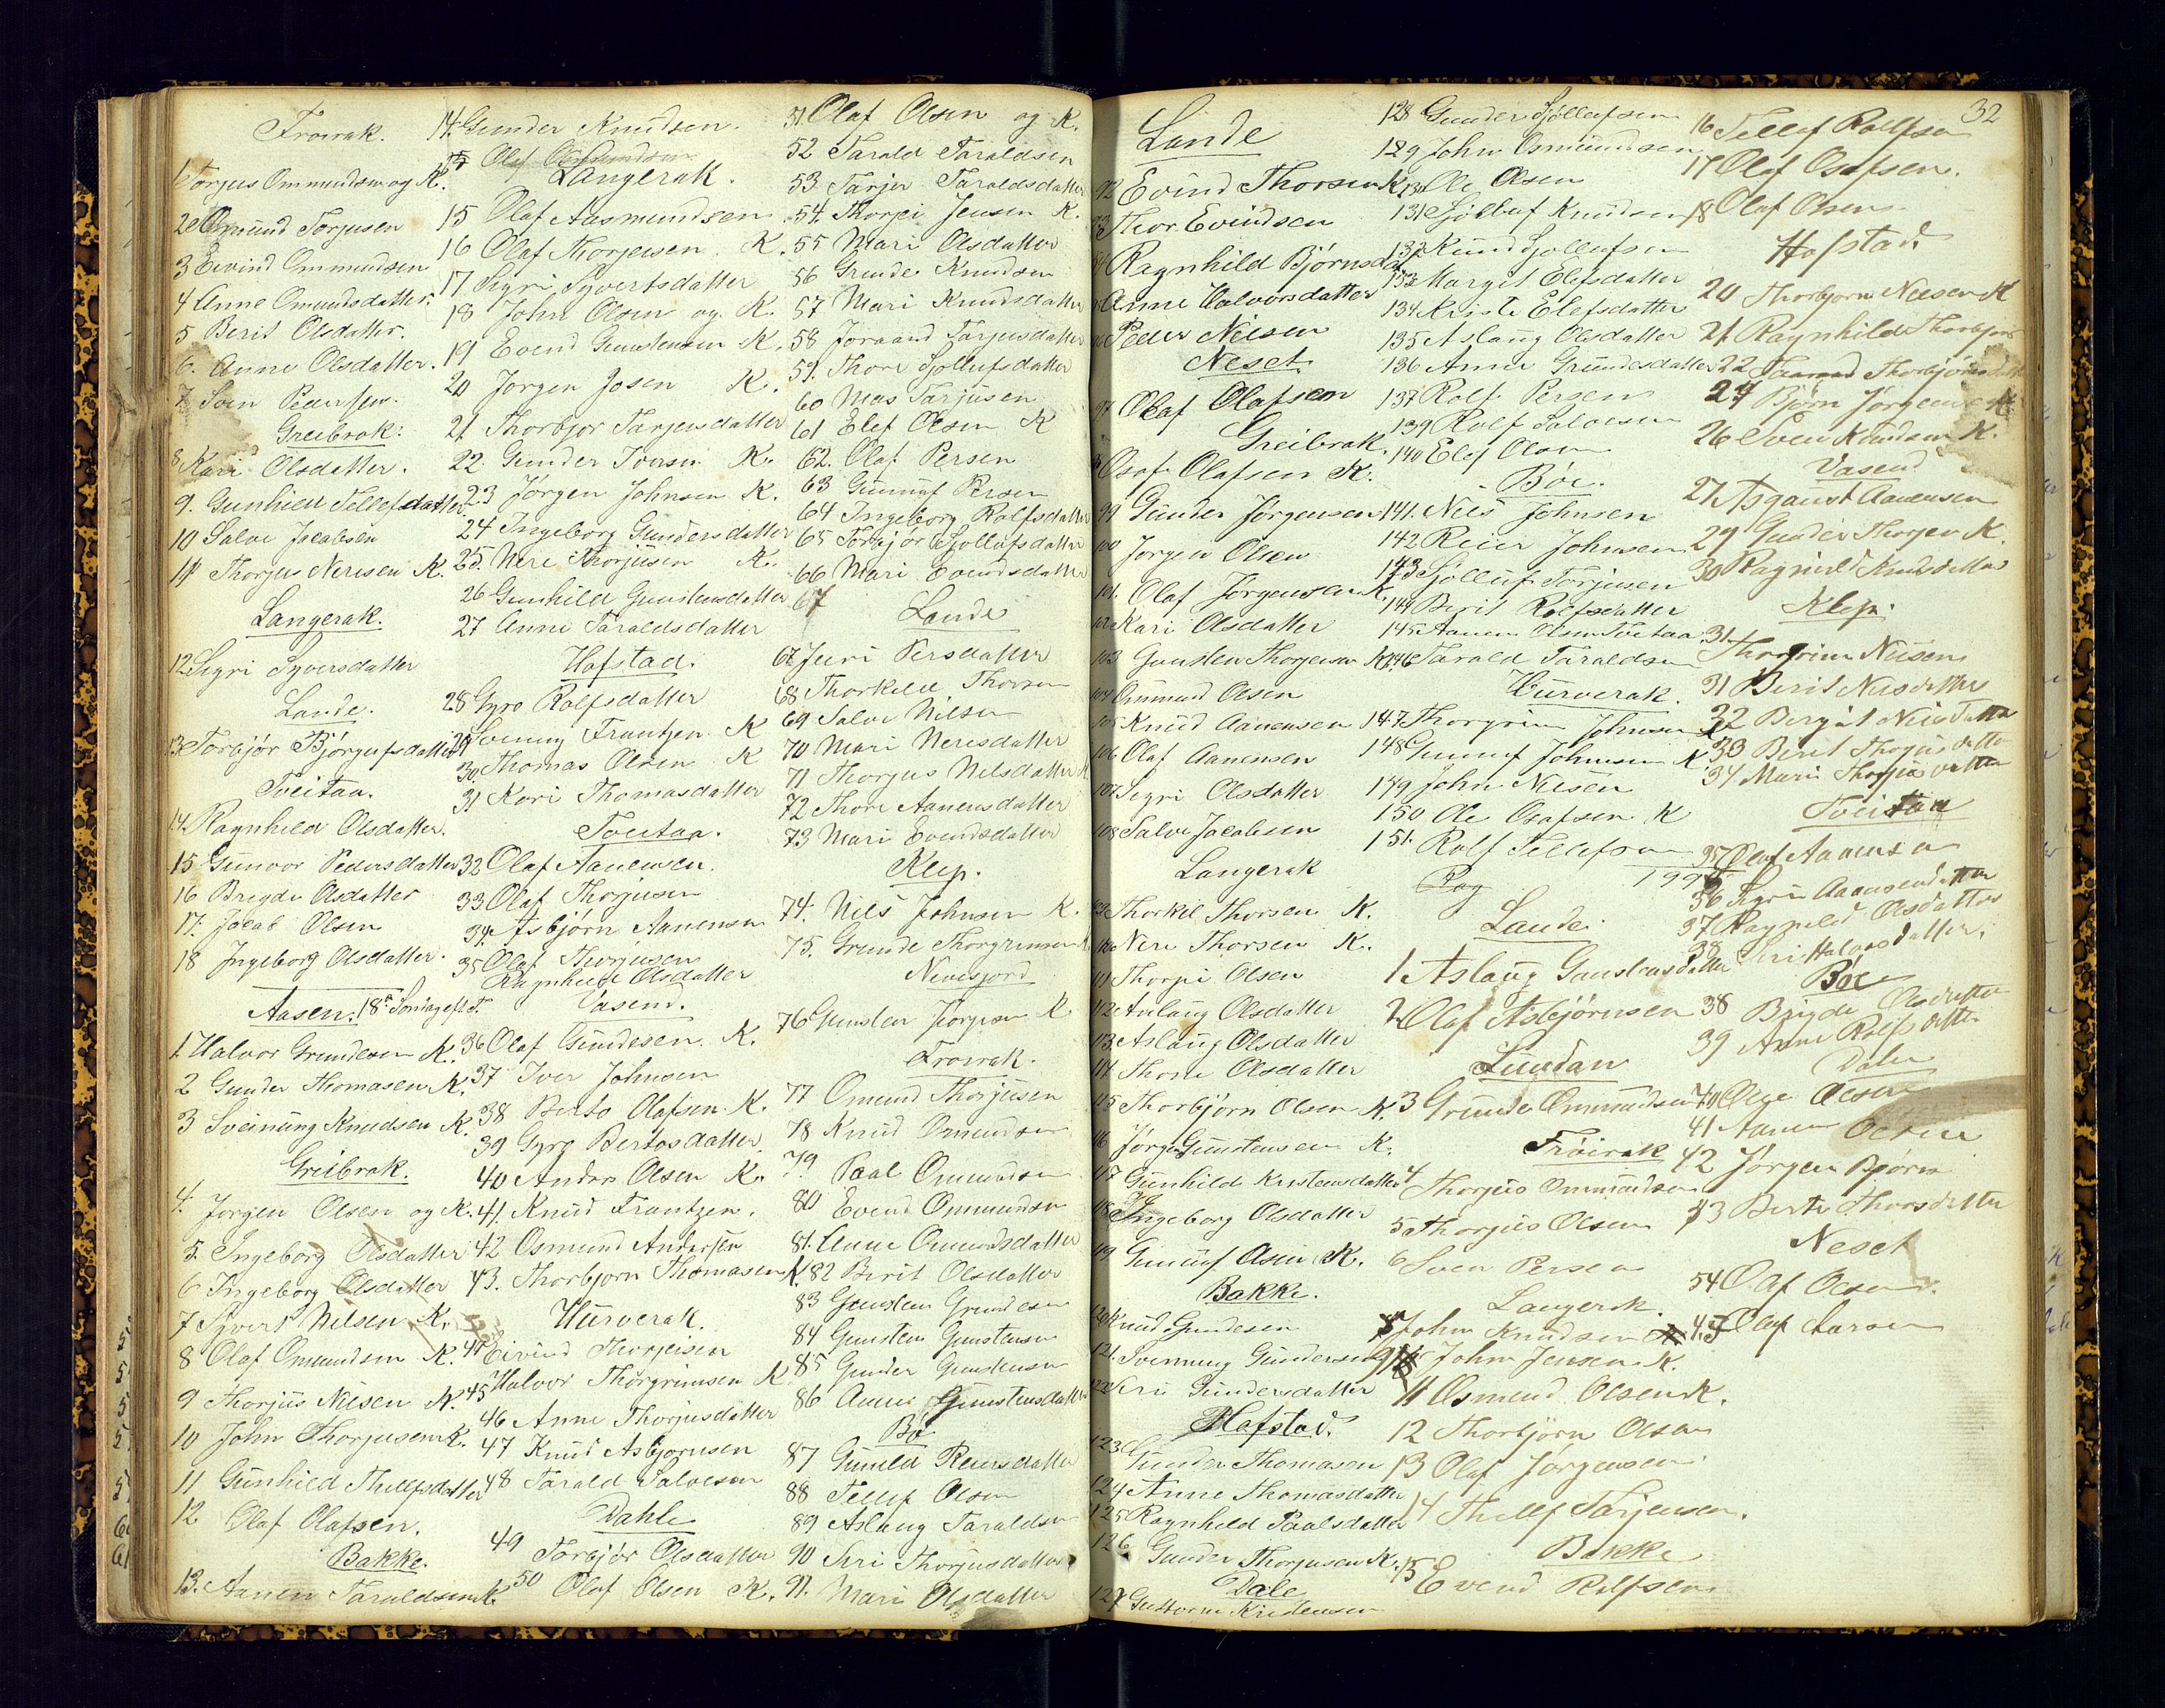 Froirak.
1 Torjus Ommundsen og K.
2 Omund Torjusen
3 Eivind Ommundsen
4 Anne Omundsdatter.
5 Berit Olsdatter.
6. Anne Olsdatter.
7 Sven Pedersen.
Greibrok.
8 Kari Olsdatter.
9. Gunhild Tellefsdatter
10 Salve Jacobsen
11 Thorjus Nerisen K.
Langerak.
12 Sigri Syversdatter
Lande.
13 Torbjør Bjørgufsdatter
Tveitaa.
14 Ragnhild Olsdatter.
15 Gunvor Pedersdatter
16 Brigde Olsdatter
17. Jacob Olsen
18 Ingeborg Olsdatter.
Aasen. 18de Søndag eft. T.
1. Halvor Grundesen K.
2 Gunder Thomasen K.
3 Sveinung Knudsen K.
Greibrak.
4. Jørgen Olsen og K.
5. Ingeborg Olsdatter
6 Ingeborg Olsdatter
7 Syvert Nilsen K.
8 Olaf Omundsen K.
9 Thorjus Nilsen K.
10 John Thorjusen K.
11 Gunhild Thellefsdatter
12 Olaf Olafsen.
Bakke.
13. Aanen Taraldsen K.
14. Gunder Knudsen.
15 Olaf
Langerak.
15 Olaf Aasmundsen
16 Olaf Thorjeisen K.
17 Sigri Syvertsdatter
18 John Olsen og K.
19 Evend Gunstensen K.
20 Jørgen Josen K.
21 Thorbjør Tarjeisdatter
22 Gunder Iversen K.
23 Jørgen Johnsen K.
24 Ingeborg Gundersdatter
25. Neri Thorjusen K.
26 Gunhild Gunstensdatter
27 Anne Taraldsdatter
Hofstad.
28 Gyro Rolfsdatter
29 Svenung Frantzen K
30. Thomas Olsen K
31 Kari Thomasdatter
Tveitaa.
32 Olaf Aanensen.
33 Olaf Thorjusen
34. Asbjørn Aanensen
35 Olaf Thorjusen
Ragnhild Olsdatter
Vasend.
36 Olaf Gundesen K.
37 Iver Johnsen
38 Berto Olafsen K.
39 Gyro Bertosdatter
40 Anders Olsen K.
41. Knud Frantzen.
42 Osmund Andersen
43. Thorbjorn Thomasen K.
Hurverak.
44 Eivind Thorjeisen
45 Halvor Thorgrimsen K
46 Anne Thorjusdatter
47 Knud Asbjornsen
48 Tarald Salvesen
Dahle
49 Torbjør Olsdatter
50 Olaf Olsen K.
51 Olaf Olsen og K.
52 Tarald Taraldsen
53 Tarjer Taraldsdatter
54. Thorjei Jensen K.
55 Mari Olsdatter
56 Grunde Knudsen
57 Mari Knudsdatter
58 Joraand Tarjeisdatter
59. Thore Sjollufsdatter
60 Mas Tarjusen
61 Elef Olsen K
62. Olaf Persen
63 Gunnuf Persen
64 Ingeborg Rolfsdatter
65 Torbjør Gjollufsdatter
66 Mari Evendsdatter
67 Lande
67 Juri Persdatter
68 Thorkild Thorsen
69 Salve Nilsen
70 Mari Nerisdatter
71 Thorjus Nilsdatter
72 Thore Aanensdatter
73 Mari Evendsdatter
Klep.
74. Nils Johnsen K.
75. Grunde Thorgrimsen K
Nevesjord
76 Gunsten Jörgensen K.
Froirak.
77 Omund Thorjusen
78 Knud Omundsen
79 Paal Omundsen
80 Evend Ommundsen
81. Anne Omundsdatter
82 Berit Olsdatter
83 Gunsten Grundesen
84 Gunsten Gunstensen
85 Gunder Gunstensen
86 Anne Gunstensdatter
Bø
87 Gunild Reiersdatter
88 Tellef Olsen
89 Aslaug Taraldsen
90 Siri Thorjusdatter
91. Mari Olsdatter
Lande
92 Evind Thorsen K.
93 Thor Evindsen
94 Ragnhild Bjørnsdat
95 Anne Halvorsdatter
96 Peder Nilsen
Neset
97 Olaf Olafsen
Greibrak
98 Osof Olafsen K.
99 Gunder Jörgensen
100 Jorgen Olsen
101. Olaf Jørgensen K.
102 Kari Olsdatter
103 Gunsten Thorgersen K.
104 Ommund Olsen
105 Knud Aanensen
106 Olaf Aanensen
107 Sigri Olsdatter
108 Salve Jacobsen
Langerak
109 Thorkil Thorsen K.
110 Neri Thorsen K.
111 Thorjei Olsen
112 Aslaug Olsdatter
113. Aslaug Olsdatter
114 Thone Olsdatter
115 Thorbjörn Olsen K.
116 Jørgen Gunstensen K.
117 Gunhild Kristensdatter
118 Ingeborg Olsdatter
119 Gunnuf Asen K.
Bakke.
120 Knud Gundesen
121. Svennung Gundersen
122 Siri Gundersdatter
Hafstad.
123 Gunder Thomasen
124 Anne Thomasdatter
125 Ragnhild Paalsdatter
126 Gunder Thorjusen K.
Dale
127 Guttorm Kristensen
128 Gunder Sjöllefsen
129 John Osmundsen
130 Ole Olsen
131 Sjölluf Knudsen
132 Knud Sjollufsen
133 Margit Elefsdatter
134 Kristi Elefsdatter
135 Aslaug Olsdatter
136 Anne Grundesdatter
137 Rolf Persen
139 Rolf Salvesen
140 Elef Olsen
Bøe.
141. Nils Johnsen
142 Reier Johnsen
143 Sjölluf Torjusen
144 Berit Rolfsdatter
145 Aanen Olsen Tveitaa
146 Tarald Taraldsen
Hurverak.
147 Thorgrim Johnsen K
148 Gunnuf Johnsen K
149 John Nilsen
150 Ole Osafsen K
151. Rolf Tellefsen
199
Lande.
1 Aslaug Gunstensdatter
2 Olaf Asbjörnsen
Lundan
3 Grunde Ommundsen
Fröirak
4 Thorjus Ommundsen
5 Thorjus Olsen
6 Sven Persen
Langerak.
8 John Knudsen
9 John Jensen K.
11 Osmund Olsen K.
12 Thorbjörn Olsen
13 Olaf Jørgensen
14 Thellef Tarjeisen.
Bakke
15 Evend Rolfsen
32
16 Tellef Rolfsen
17 Olaf Osafsen.
18 Olaf Olsen
Hofstad.
20 Thorbjorn Nilsen K
21 Ragnhild Thorbjørns
22 Thorbjörnsdatter
24 Björn Jörgensen K
26 Sven Knudsen K.
Vasend
27 Asgaut Aanensen
29 Gunder Thorjer K.
30 Ragnild Knudsdatter
Klep.
31 Thorgrim Nilsen
31 Berit Nilsdatter
32 Bergit Nilsdatter
33 Berit Thorjusdatter
34 Mari Thorjusdatter
Tveitaa
35 Olaf Aanensen
36 Sigri Aanensdatter
37 Ragnild Olsdatter
38 Siri Halvorsdatter.
Bøe
38 Brigde Olsdatter
39 Anne Rolfsdatter
Dale
40 Olge Olsen
41 Aanen Olsen
42 Jörgen Bjørn
43 Berte Thorsdatter
Neset
54 Olaf Olsen.
45 Olaf Larsen